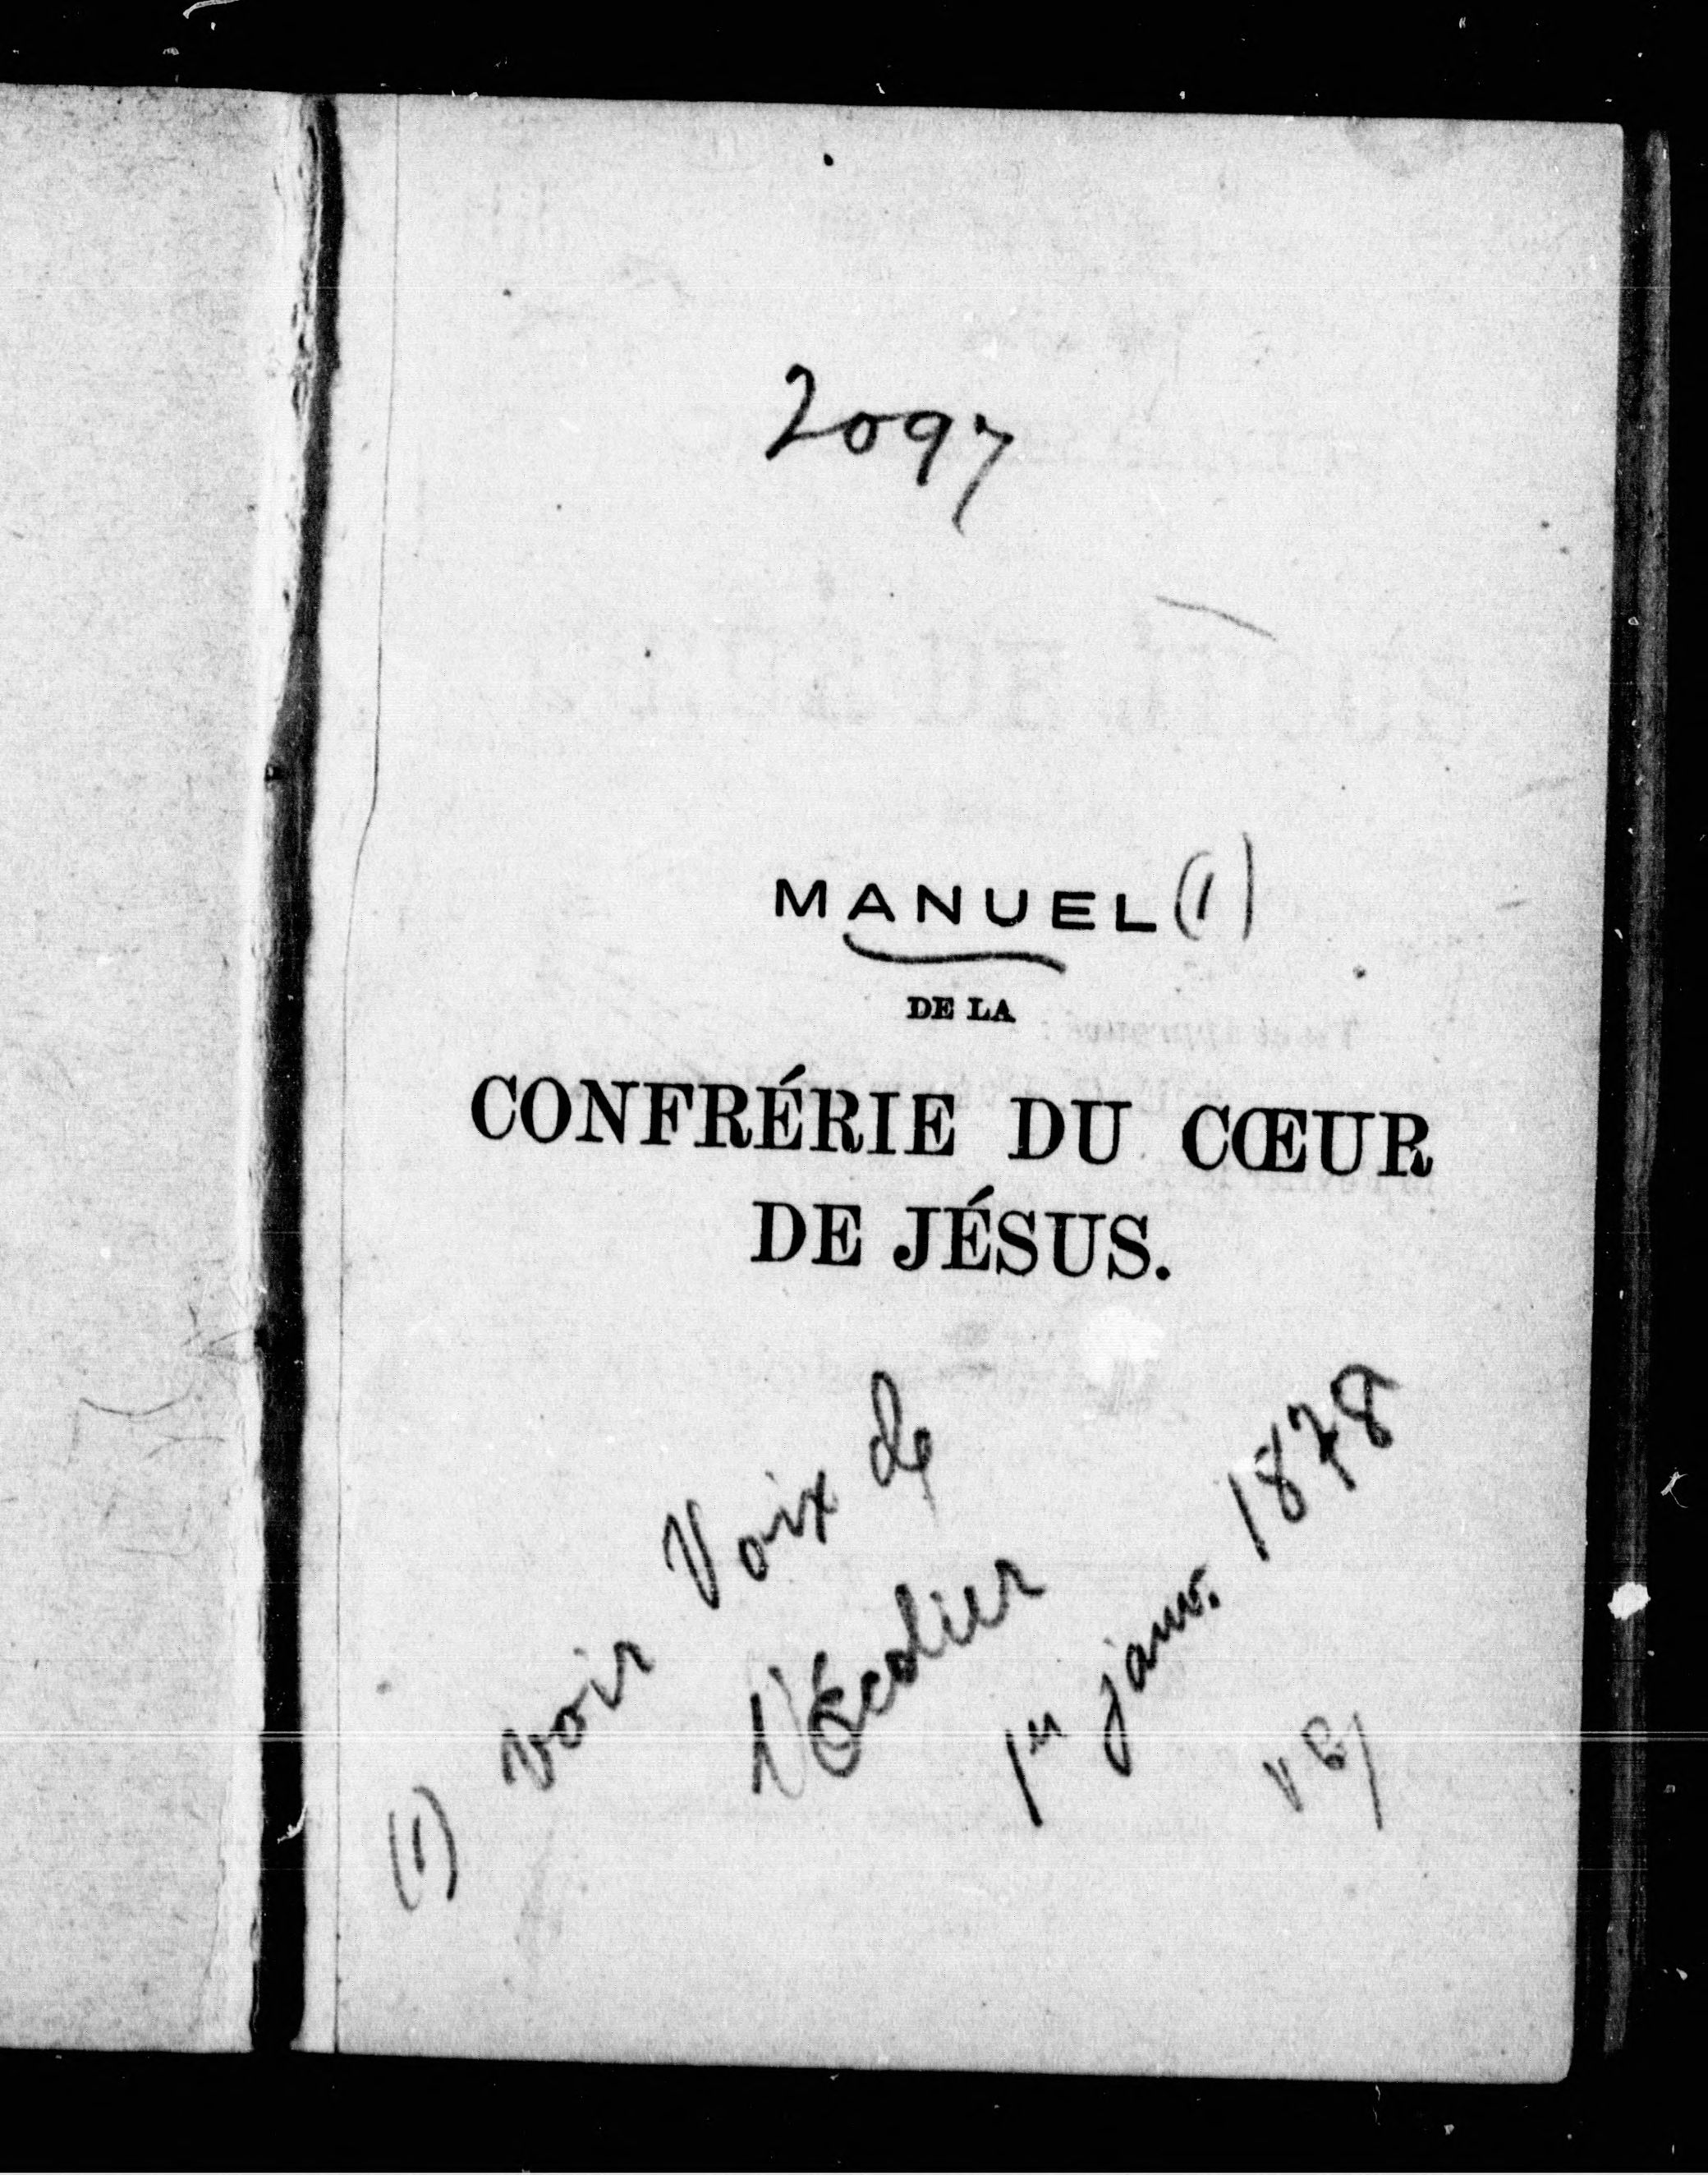 2097
MANUEL (1)
DE LA
CONFRÉRIE DU CŒUR
DE JÉSUS.
(1) voir Voix de
l'Ecolier
1er janv. 1878